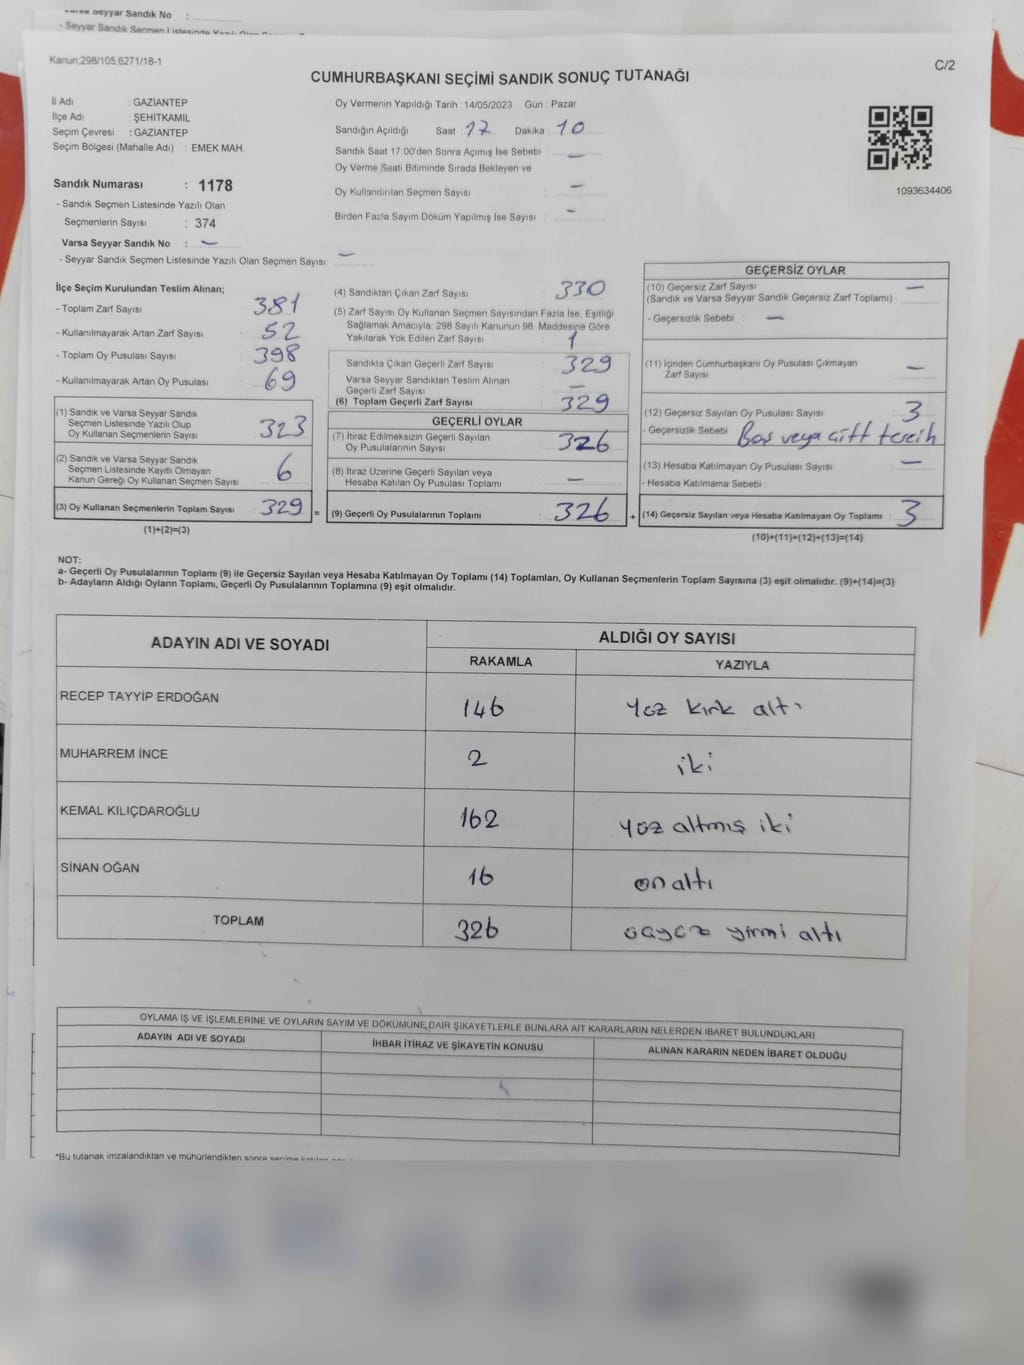 Varsa Seyyar Sandık No :
- Seyyar Sandık Seçmen Listesinde Yazılı
Kanun:298/105;6271/18-1
C/2
CUMHURBAŞKANI SEÇİMİ SANDIK SONUÇ TUTANAĞI
İl Adı : GAZİANTEP
İlçe Adı : ŞEHİTKAMİL
Seçim Çevresi : GAZİANTEP
Seçim Bölgesi (Mahalle Adı) : EMEK MAH.
Oy Vermenin Yapıldığı Tarih : 14/05/2023 Gün : Pazar
Sandığın Açıldığı Saat : 17 Dakika : 10
Sandık Saat 17.00'den Sonra Açımış İse Sebebi : —
Oy Verme Saati Bitiminde Sırada Bekleyen ve
Oy Kullandırılan Seçmen Sayısı : —
Birden Fazla Sayım Döküm Yapılmış İse Sayısı : —
1093634406
Sandık Numarası : 1178
- Sandık Seçmen Listesinde Yazılı Olan
Seçmenlerin Sayısı : 374
Varsa Seyyar Sandık No : —
- Seyyar Sandık Seçmen Listesinde Yazılı Olan Seçmen Sayısı: —
İlçe Seçim Kurulundan Teslim Alınan;
- Toplam Zarf Sayısı : 381
- Kullanılmayarak Artan Zarf Sayısı : 52
- Toplam Oy Pusulası Sayısı : 398
- Kullanılmayarak Artan Oy Pusulası : 69
(1) Sandık ve Varsa Seyyar Sandık
Seçmen Listesinde Yazılı Olup
Oy Kullanan Seçmenlerin Sayısı : 323
(2) Sandık ve Varsa Seyyar Sandık
Seçmen Listesinde Kayıtlı Olmayan
Kanun Gereği Oy Kullanan Seçmen Sayısı : 6
(3) Oy Kullanan Seçmenlerin Toplam Sayısı : 329 =
(1)+(2)=(3)
(4) Sandıktan Çıkan Zarf Sayısı : 330
(5) Zarf Sayısı Oy Kullanan Seçmen Sayısından Fazla İse, Eşitliği
Sağlamak Amacıyla; 298 Sayılı Kanunun 98. Maddesine Göre
Yakılarak Yok Edilen Zarf Sayısı : 1
Sandıkta Çıkan Geçerli Zarf Sayısı : 329
Varsa Seyyar Sandıktan Teslim Alınan
Geçerli Zarf Sayısı : —
(6) Toplam Geçerli Zarf Sayısı : 329
GEÇERLİ OYLAR
(7) İtiraz Edilmeksizin Geçerli Sayılan
Oy Pusulalarının Sayısı : 326
(8) İtiraz Üzerine Geçerli Sayılan veya
Hesaba Katılan Oy Pusulası Toplamı : —
(9) Geçerli Oy Pusulalarının Toplamı : 326 +
GEÇERSİZ OYLAR
(10) Geçersiz Zarf Sayısı : —
(Sandık ve Varsa Seyyar Sandık Geçersiz Zarf Toplamı)
- Geçersizlik Sebebi : —
(11) İçinden Cumhurbaşkanı Oy Pusulası Çıkmayan
Zarf Sayısı : —
(12) Geçersiz Sayılan Oy Pusulası Sayısı : 3
- Geçersizlik Sebebi : Boş veya çift tercih
(13) Hesaba Katılmayan Oy Pusulası Sayısı : —
- Hesaba Katılmama Sebebi :
(14) Geçersiz Sayılan veya Hesaba Katılmayan Oy Toplamı : 3
(10)+(11)+(12)+(13)=(14)
NOT:
a- Geçerli Oy Pusulalarının Toplamı (9) ile Geçersiz Sayılan veya Hesaba Katılmayan Oy Toplamı (14) Toplamları, Oy Kullanan Seçmenlerin Toplam Sayısına (3) eşit olmalıdır. (9)+(14)=(3)
b- Adayların Aldığı Oyların Toplamı, Geçerli Oy Pusulalarının Toplamına (9) eşit olmalıdır.
ADAYIN ADI VE SOYADI
ALDIĞI OY SAYISI
RAKAMLA YAZIYLA
RECEP TAYYİP ERDOĞAN 146 Yüz kırk altı
MUHARREM İNCE 2 iki
KEMAL KILIÇDAROĞLU 162 yüz altmış iki
SİNAN OĞAN 16 on altı
TOPLAM 326 üçyüz yirmi altı
OYLAMA İŞ VE İŞLEMLERİNE VE OYLARIN SAYIM VE DÖKÜMÜNE DAİR ŞİKAYETLERLE BUNLARA AİT KARARLARIN NELERDEN İBARET BULUNDUKLARI
ADAYIN ADI VE SOYADI İHBAR İTİRAZ VE ŞİKAYETİN KONUSU ALINAN KARARIN NEDEN İBARET OLDUĞU
*Bu tutanak imzalandıktan ve mühürlendikten sonra